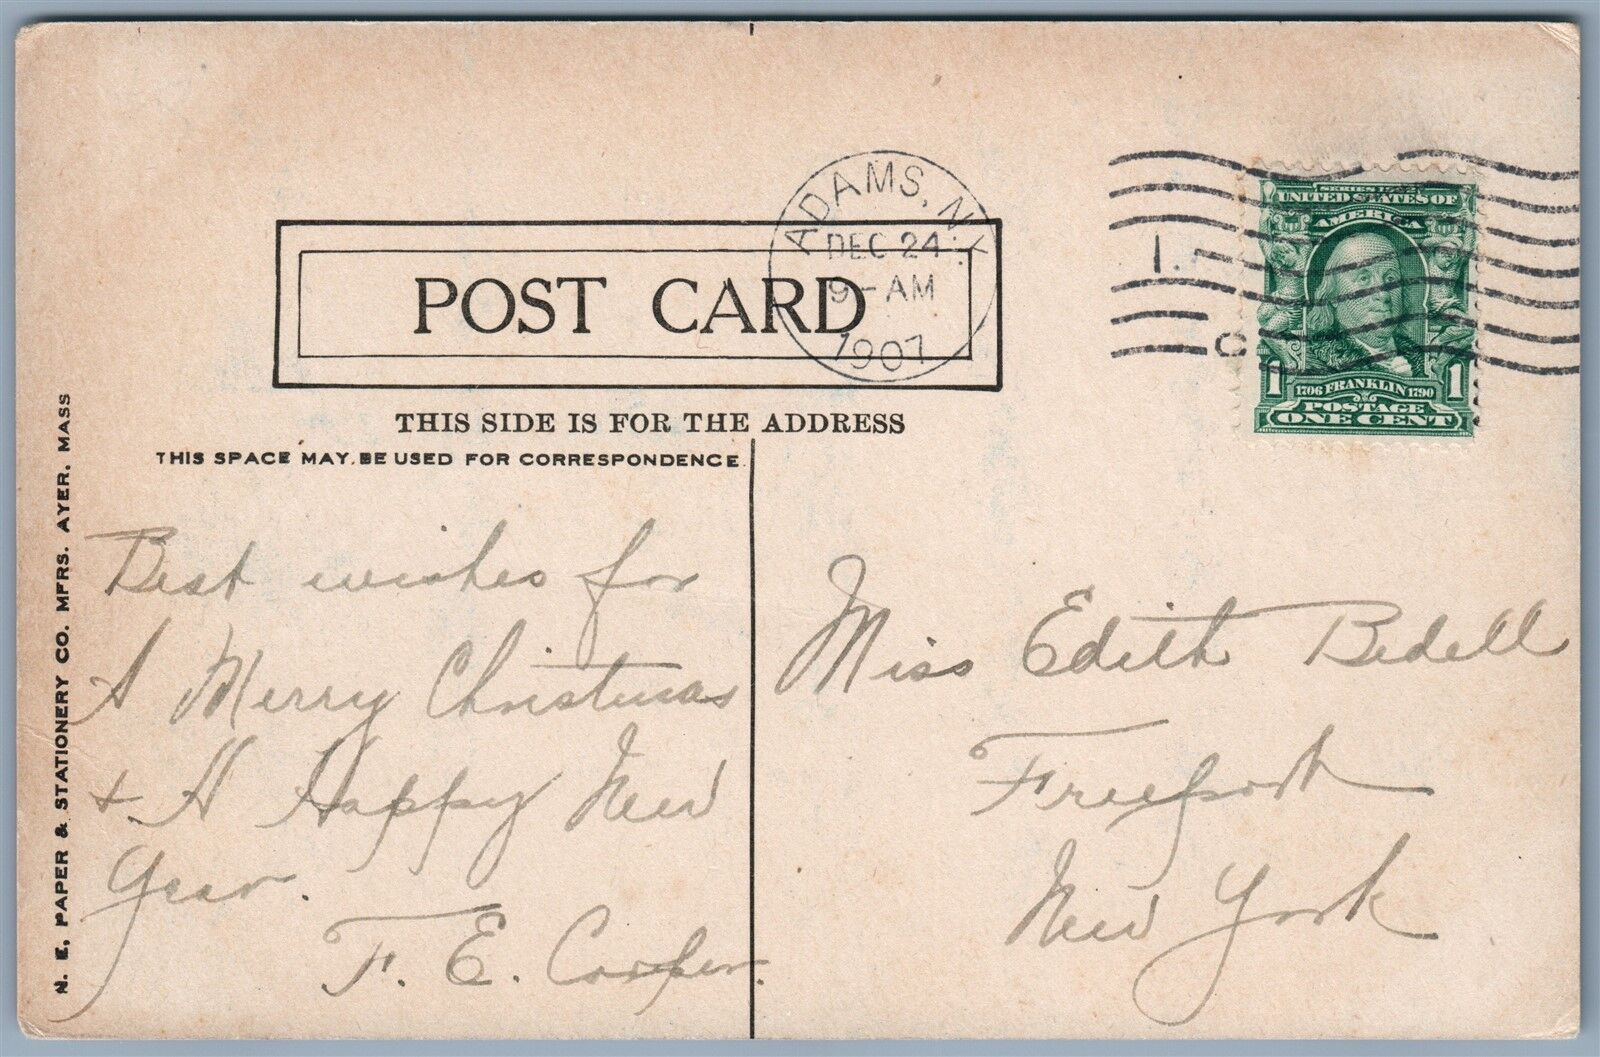 ADAMS, N.Y.
DEC 24
9-AM
1907
1.
UNITED STATES OF
AMERICA
1706 FRANKLIN 1790
1 POSTAGE 1
ONE CENT
POST CARD
THIS SIDE IS FOR THE ADDRESS
THIS SPACE MAY BE USED FOR CORRESPONDENCE
N. E. PAPER & STATIONERY CO. MFRS. AYER. MASS
Best wishes for
A Merry Christmas
+ A Happy New
Year.
F. E. Cooper.
Miss Edith Bedell
Freeport
New York